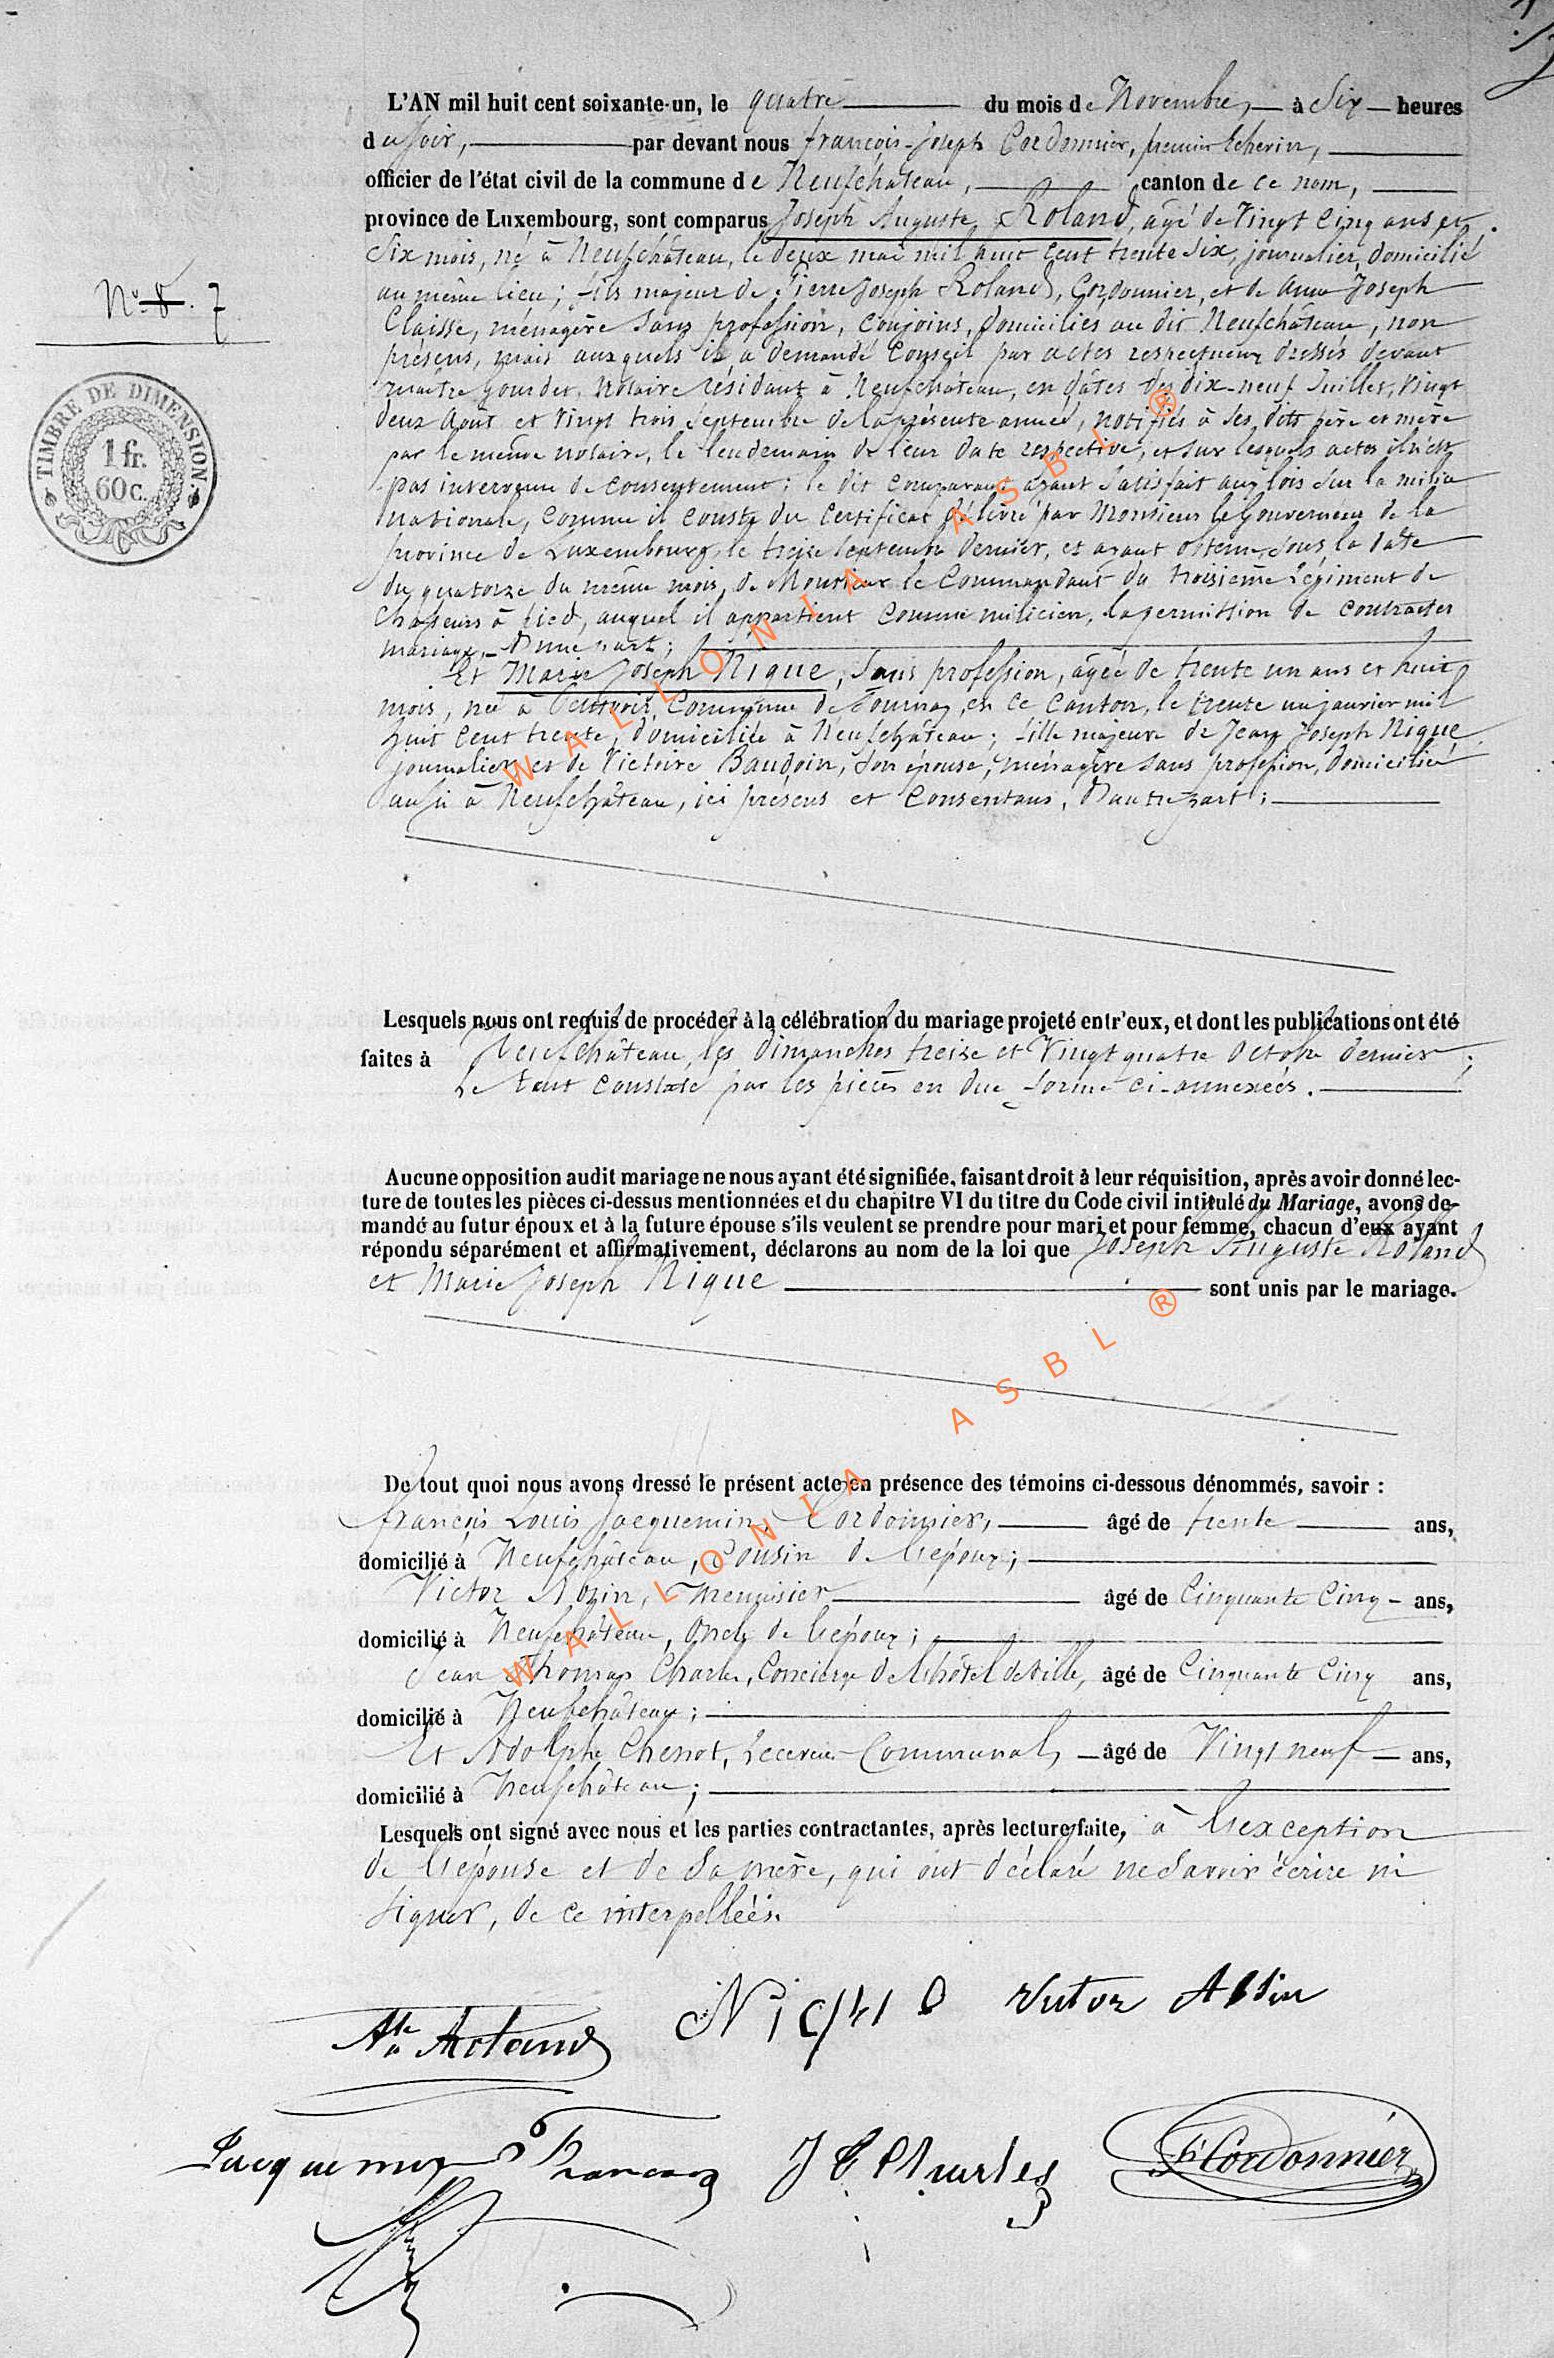 L'AN mil huit cent soixante-un, le quatre du mois de Novembre, à Six heures
du soir, par devant nous françois-joseph Cordonnier, premier Echevin,
officier de l'état civil de la commune de Neufchâteau, canton de ce nom,
province de Luxembourg, sont comparus Joseph Auguste Roland, âgé de Vingt Cinq ans et
Six mois, né à Neufchâteau, le deux mai mil huit Cent trente Six, journalier, domicilié
au même lieu; fils majeur de Pierre Joseph Roland, Cordonnier, et de Anne Joseph
Claisse, ménagère Sans profession, Conjoins, domiciliés au dit Neufchâteau, non
présens, mais auxquels il a demandé Conseil par actes respectueux dressés devant
maître Gourdet, Notaire résidant à Neufchâteau, en dates des dix-neuf Juillet, Vingt
deux Août et Vingt trois Septembre de la présente année, notifiés à Ses dits père et mère
par le même notaire, le lendemain de leur date respective, et sur lesquels actes il n'est
pas intervenu de Consentement; le dit Comparant ayant Satisfait aux lois Sur la milice
Nationale, Comme il Conste du Certificat délivré par Monsieur le Gouverneur de la
province de Luxembourg, le treize Septembre dernier, et ayant obtenu, Sous la date
du quatorze du même mois, de Monsieur le Commandant du troisième Régiment de
Chasseurs à pied, auquel il appartient Comme milicien, la permission de Contracter
mariage, D'une part;
N° 8. 7
TIMBRE DE DIMENSION.
1 fr.
60 c.
Et Marie Joseph Nique, Sans profession, âgée de trente un ans et huit
mois, née à Commune de Tournay, en ce Canton, le trente un janvier mil
huit Cent trente, domiciliée à Neufchâteau; fille majeure de Jean Joseph Nique
journalier et de Victoire Baudoin, Son épouse, ménagère Sans profession, domiciliés
aussi à Neufchâteau, ici présens et Consentans, D'autre part;
Lesquels nous ont requis de procéder à la célébration du mariage projeté entr'eux, et dont les publications ont été
faites à Neufchâteau, les dimanches treize et Vingt quatre Octobre dernier;
Le tout Constaté par les pièces en due forme ci-annexées.
Aucune opposition audit mariage ne nous ayant été signifiée, faisant droit à leur réquisition, après avoir donné lec-
ture de toutes les pièces ci-dessus mentionnées et du chapitre VI du titre du Code civil intitulé du Mariage, avons de-
mandé au futur époux et à la future épouse s'ils veulent se prendre pour mari et pour femme, chacun d'eux ayant
répondu séparément et affirmativement, déclarons au nom de la loi que Joseph Auguste Roland
et Marie Joseph Nique sont unis par le mariage.
De tout quoi nous avons dressé le présent acte en présence des témoins ci-dessous dénommés, savoir :
françois Louis Jacquemin, Cordonnier, âgé de trente ans,
domicilié à Neufchâteau, Cousin de l'époux;
Victor menuisier âgé de Cinquante Cinq ans,
domicilié à Neufchâteau, Oncle de l'époux;
Jean Thomas Charles, Concierge de l'hôtel de Ville, âgé de Cinquante Cinq ans,
domicilié à Neufchâteau;
Et Adolphe Chenot, receveur Communal, âgé de Vingt neuf ans,
domicilié à Neufchâteau;
Lesquels ont signé avec nous et les parties contractantes, après lecture faite, à l'exception
de l'épouse et de Sa mère, qui ont déclaré ne Savoir écrire ni
Signer, de ce interpellées.
Victor
Roland
Jacquemin François J T Charles F. Cordonnier
WALLONIA ASBL ®
WALLONIA ASBL ®